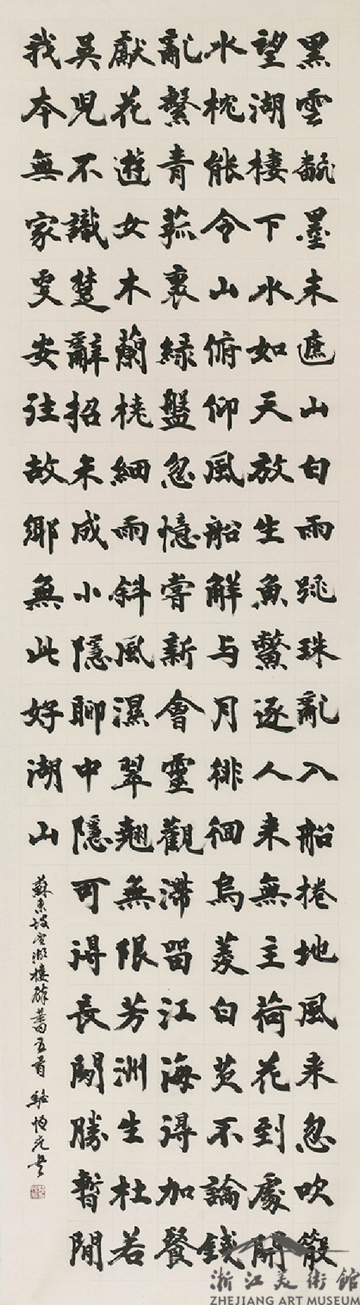 黑雲翻墨未遮山白雨跳珠亂入船捲地風来忽吹散
望湖樓下水如天放生魚鱉逐人来無主荷花到處開
水枕能令山俯仰風船解与月徘徊烏菱白芡不論錢
亂繫青菰裹綠盤忽憶嘗新會靈觀滯留江海得加餐
獻花遊女木蘭橈細雨斜風濕翠翹無限芳洲生杜若
吳兒不識楚辭招未成小隱聊中隱可得長閑勝暫閒
我本無家更安往故鄉無此好湖山
蘇東坡望湖樓醉書五首 駱恒光書
浙江美術館
ZHEJIANG ART MUSEUM